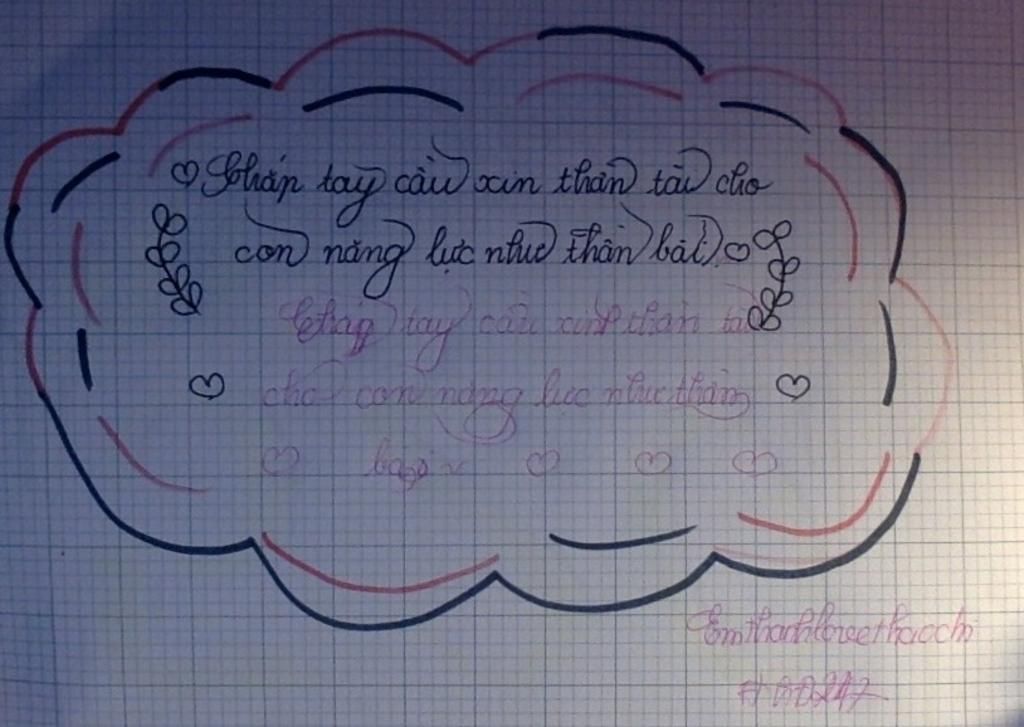 Chắp tay cầu xin thần tài cho
con năng lực như thần bài
Chắp tay cầu xin thần tài
cho con năng lực như thần
bài
Emthanhloveethaochi